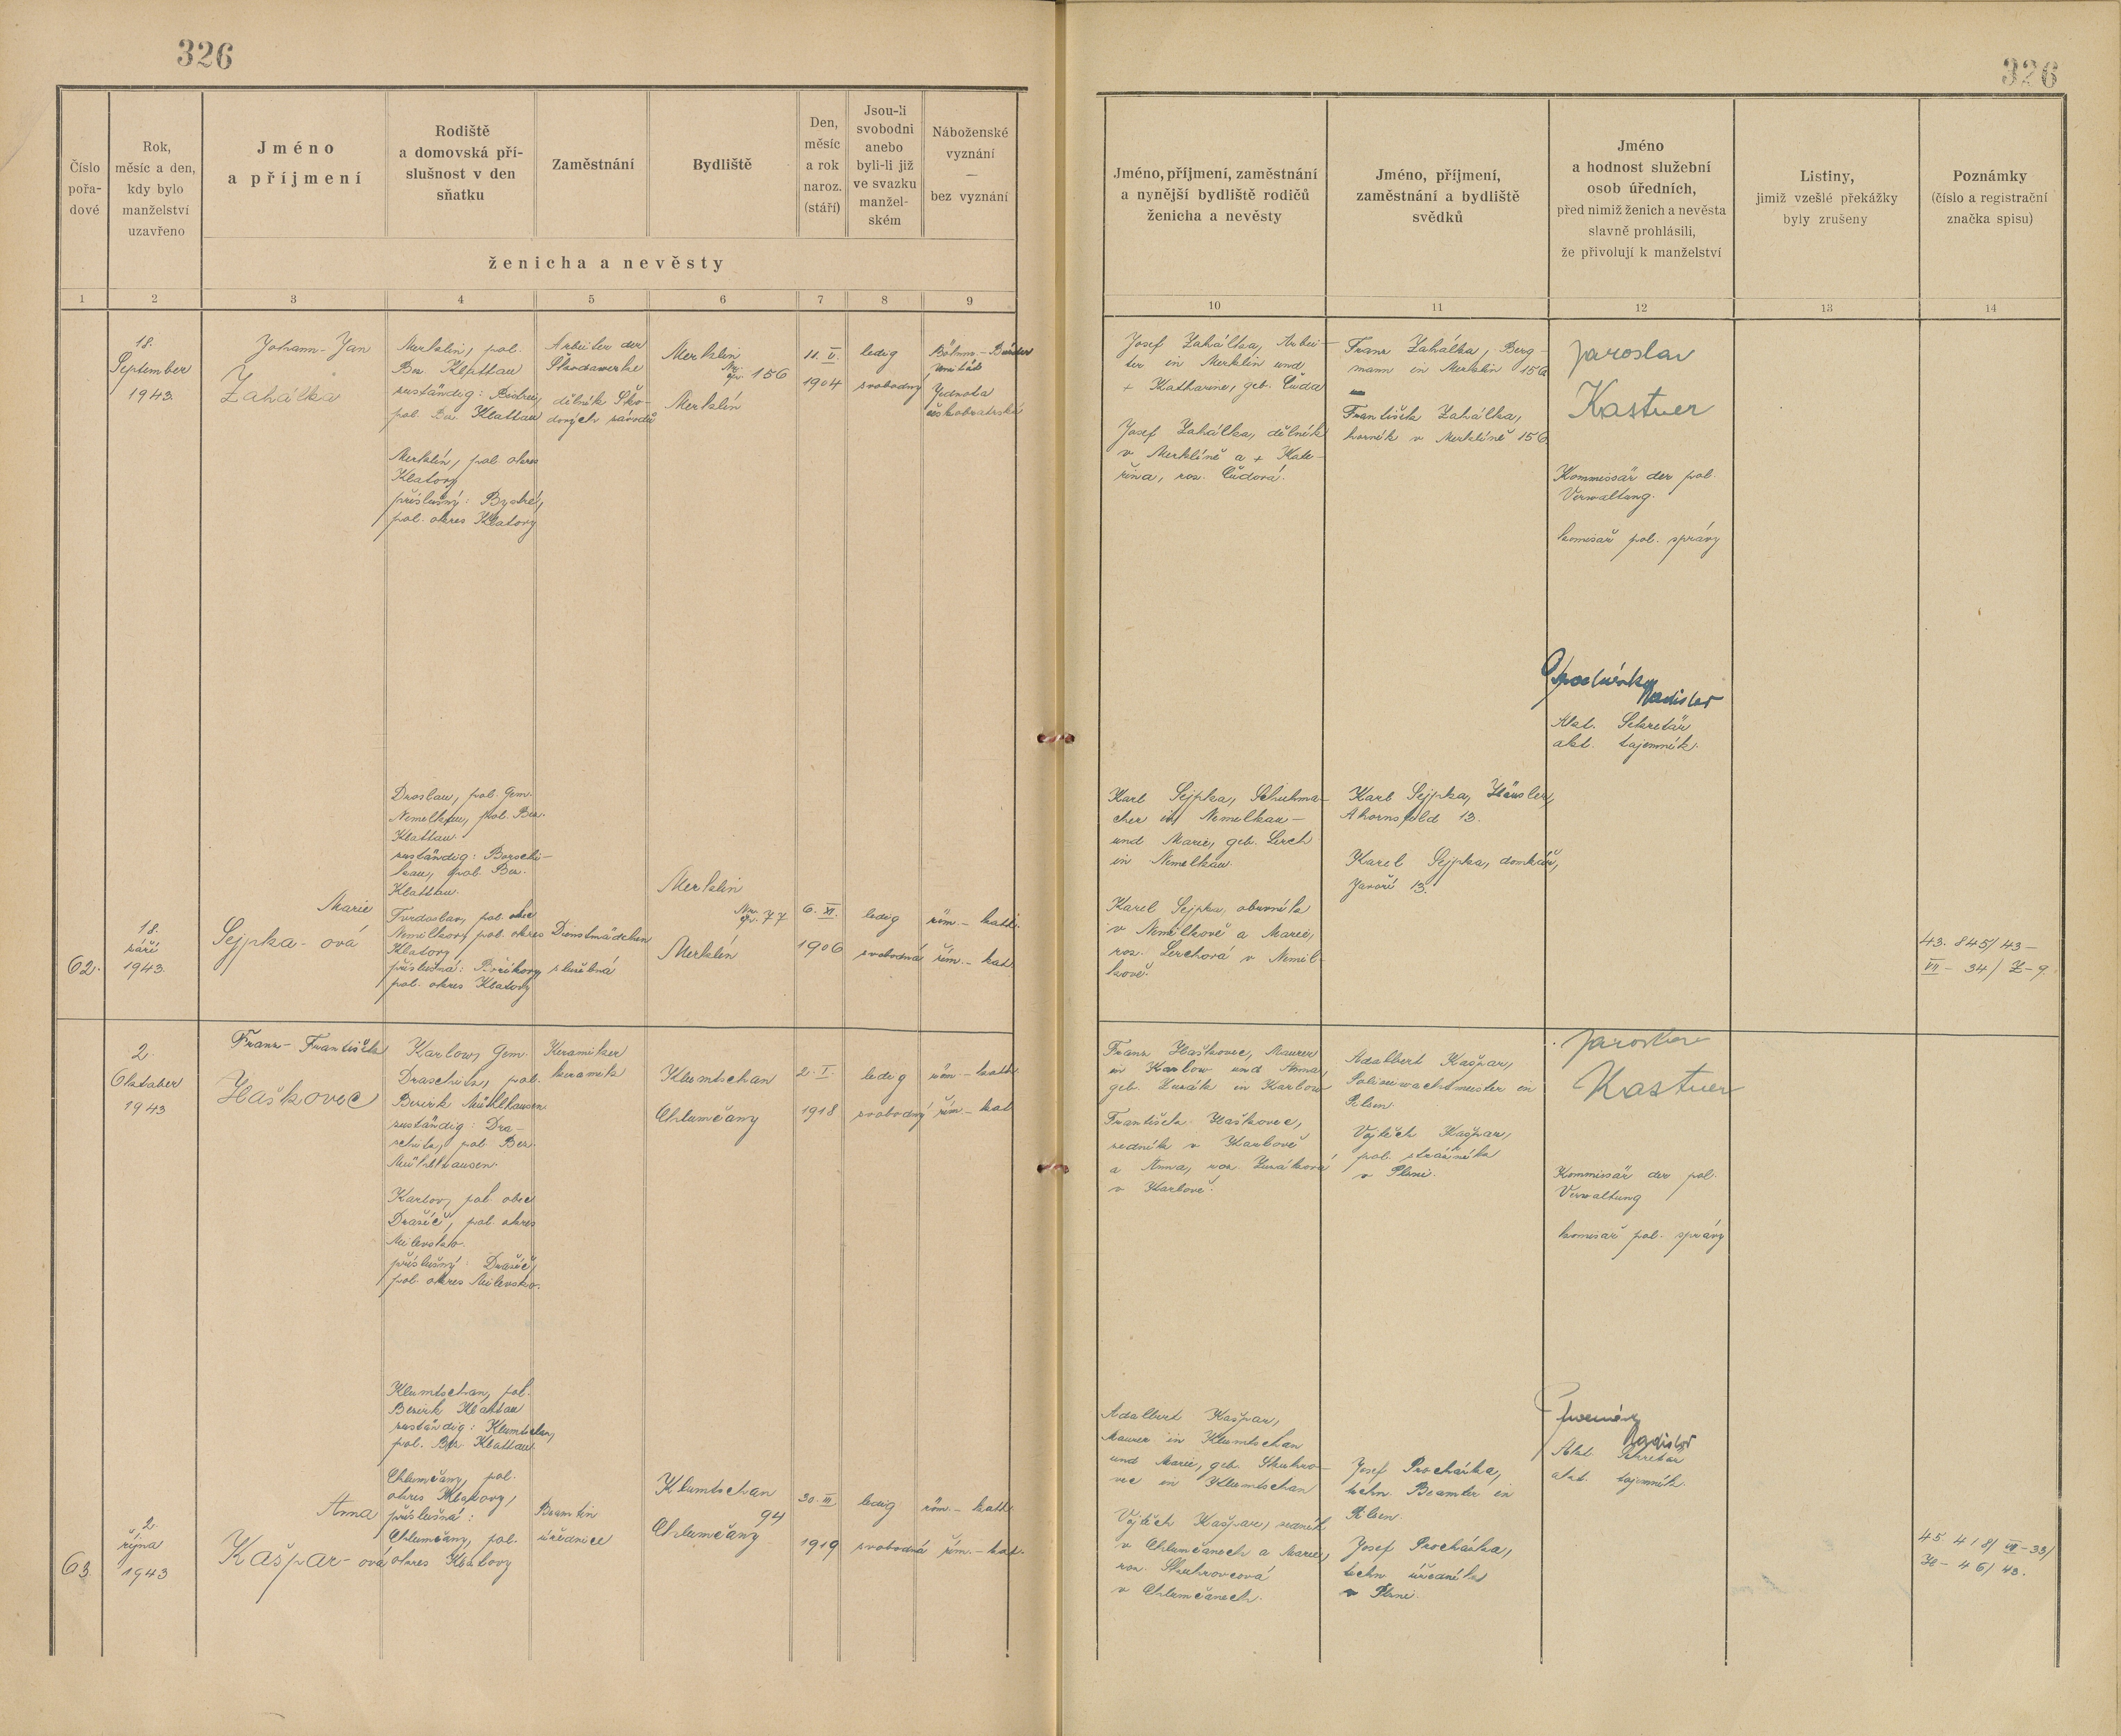 326
326
Číslo
pořa-
dové
Rok,
měsíc a den,
kdy bylo
manželství
uzavřeno
Jméno
a příjmení
Rodiště
a domovská pří-
slušnost v den
sňatku
Zaměstnání
Bydliště
Den,
měsíc
a rok
naroz.
(stáří)
Jsou-li
svobodni
anebo
byli-li již
ve svazku
manžel-
ském
Náboženské
vyznání
—
bez vyznání
ženicha a nevěsty
Jméno, příjmení, zaměstnání
a nynější bydliště rodičů
ženicha a nevěsty
Jméno, příjmení,
zaměstnání a bydliště
svědků
Jméno
a hodnost služební
osob úředních,
před nimiž ženich a nevěsta
slavně prohlásili,
že přivolují k manželství
Listiny,
jimiž vzešlé překážky
byly zrušeny
Poznámky
(číslo a registrační
značka spisu)
1 2 3 4 5 6 7 8 9
10 11 12 13 14
18.
September
1943.
Johann-Jan
Zahálka
Merklin, pol.
Bez. Klattau
zuständig:
pol. Bez. Klattau
Merklín, pol. okres
Klatovy
příslušný: Bystré,
pol. okres Klatovy
Arbeiter der
Škodawerke
dělník Ško-
dových závodů
Merklin
Nr.
čp. 156
Merklín
11. V.
1904
ledig
svobodný
Böhm.-Brüder
Unität
Jednota
českobratrská
Josef Zahálka, Arbei-
ter in Merklin und
+ Katharine, geb. Čuda
Josef Zahálka, dělník
v Merklíně a + Kate-
řina, roz. Čudová.
Franz Zahálka, Berg-
mann in Merklin 156
František Zahálka,
horník v Merklíně 156
Jaroslav
Kastner
Kommissär der pol.
Verwaltung.
komisař pol. správy
Ladislav
Akt. Sekretär
akt. tajemník.
62.
18.
září
1943.
Marie
Sejpka-ová
Droslau, pol. Gem.
Nemelkau, pol. Bez.
Klattau.
zuständig: Borschi-
kau, pol. Bez.
Klattau.
Tvrdoslav, pol. obec
Nemilkov, pol. okres
Klatovy
příslušná: Bořikovy
pol. okres Klatovy
Dienstmädchen
služebná
Merklin
Nr.
čp. 77
Merklín
6. XI.
1906
ledig
svobodná
röm.-kath.
řím.-kat.
Karl Sejpka, Schuhma-
cher in Nemelkau-
und Marie, geb. Lerch
in Nemelkau.
Karel Sejpka, obuvník
v Nemilkově a Marie,
roz. Lerchová v Nemil-
kově.
Karl Sejpka, Häusler,
Ahornsfeld 13.
Karel Sejpka, domkář,
Javoří 13.
43. 845/43-
VII-34/Z-9.
2.
Oktober
1943
Franz-František
Haškovec
Karlow, Gem.
Draschitz, pol.
Bezirk Mühlhausen.
zuständig: Dra-
schitz, pol. Bez.
Mühlhausen.
Karlov, pol. obec
Dražíč, pol. okres
Milevsko.
příslušný: Dražíč,
pol. okres Milevsko.
Keramiker
keramik
Klumtschan
Chlumčany
2. I.
1918
ledig
svobodný
röm.-kath.
řím.-kat
Franz Haškovec, Maurer
in Karlow und Anna,
geb. Zuzák in Karlow
František Haškovec,
zedník v Karlově
a Anna, roz. Zuzáková
v Karlově.
Adalbert Kašpar,
Polizeiwachtmeister in
Pilsen.
Vojtěch Kašpar,
pol. strážník
v Plzni.
Jaroslav
Kastner
Kommissär der pol.
Verwaltung
komisař pol. správy
Ladislav
Akt. Sekretär
akt. tajemník.
63.
2.
října
1943
Anna
Kašpar-ová
Klumtschan, pol.
Bezirk Klattau
zuständig: Klumtschan,
pol. Bez. Klattau
Chlumčany, pol.
okres Klatovy,
příslušná:
Chlumčany, pol.
okres Klatovy
Beamtin
úřednice
Klumtschan
94
Chlumčany
30. III.
1919
ledig
svobodná
röm.-kath.
řím.-kat.
Adalbert Kašpar,
Maurer in Klumtschan
und Marie, geb. Skuhro-
vec in Klumtschan
Vojtěch Kašpar, zedník
v Chlumčanech a Marie,
roz. Skuhrovcová
v Chlumčanech.
Josef Procházka,
techn. Beamter in
Pilsen.
Josef Procházka,
techn. úředník
v Plzni.
45. 418/VII-33/
H-46/43.